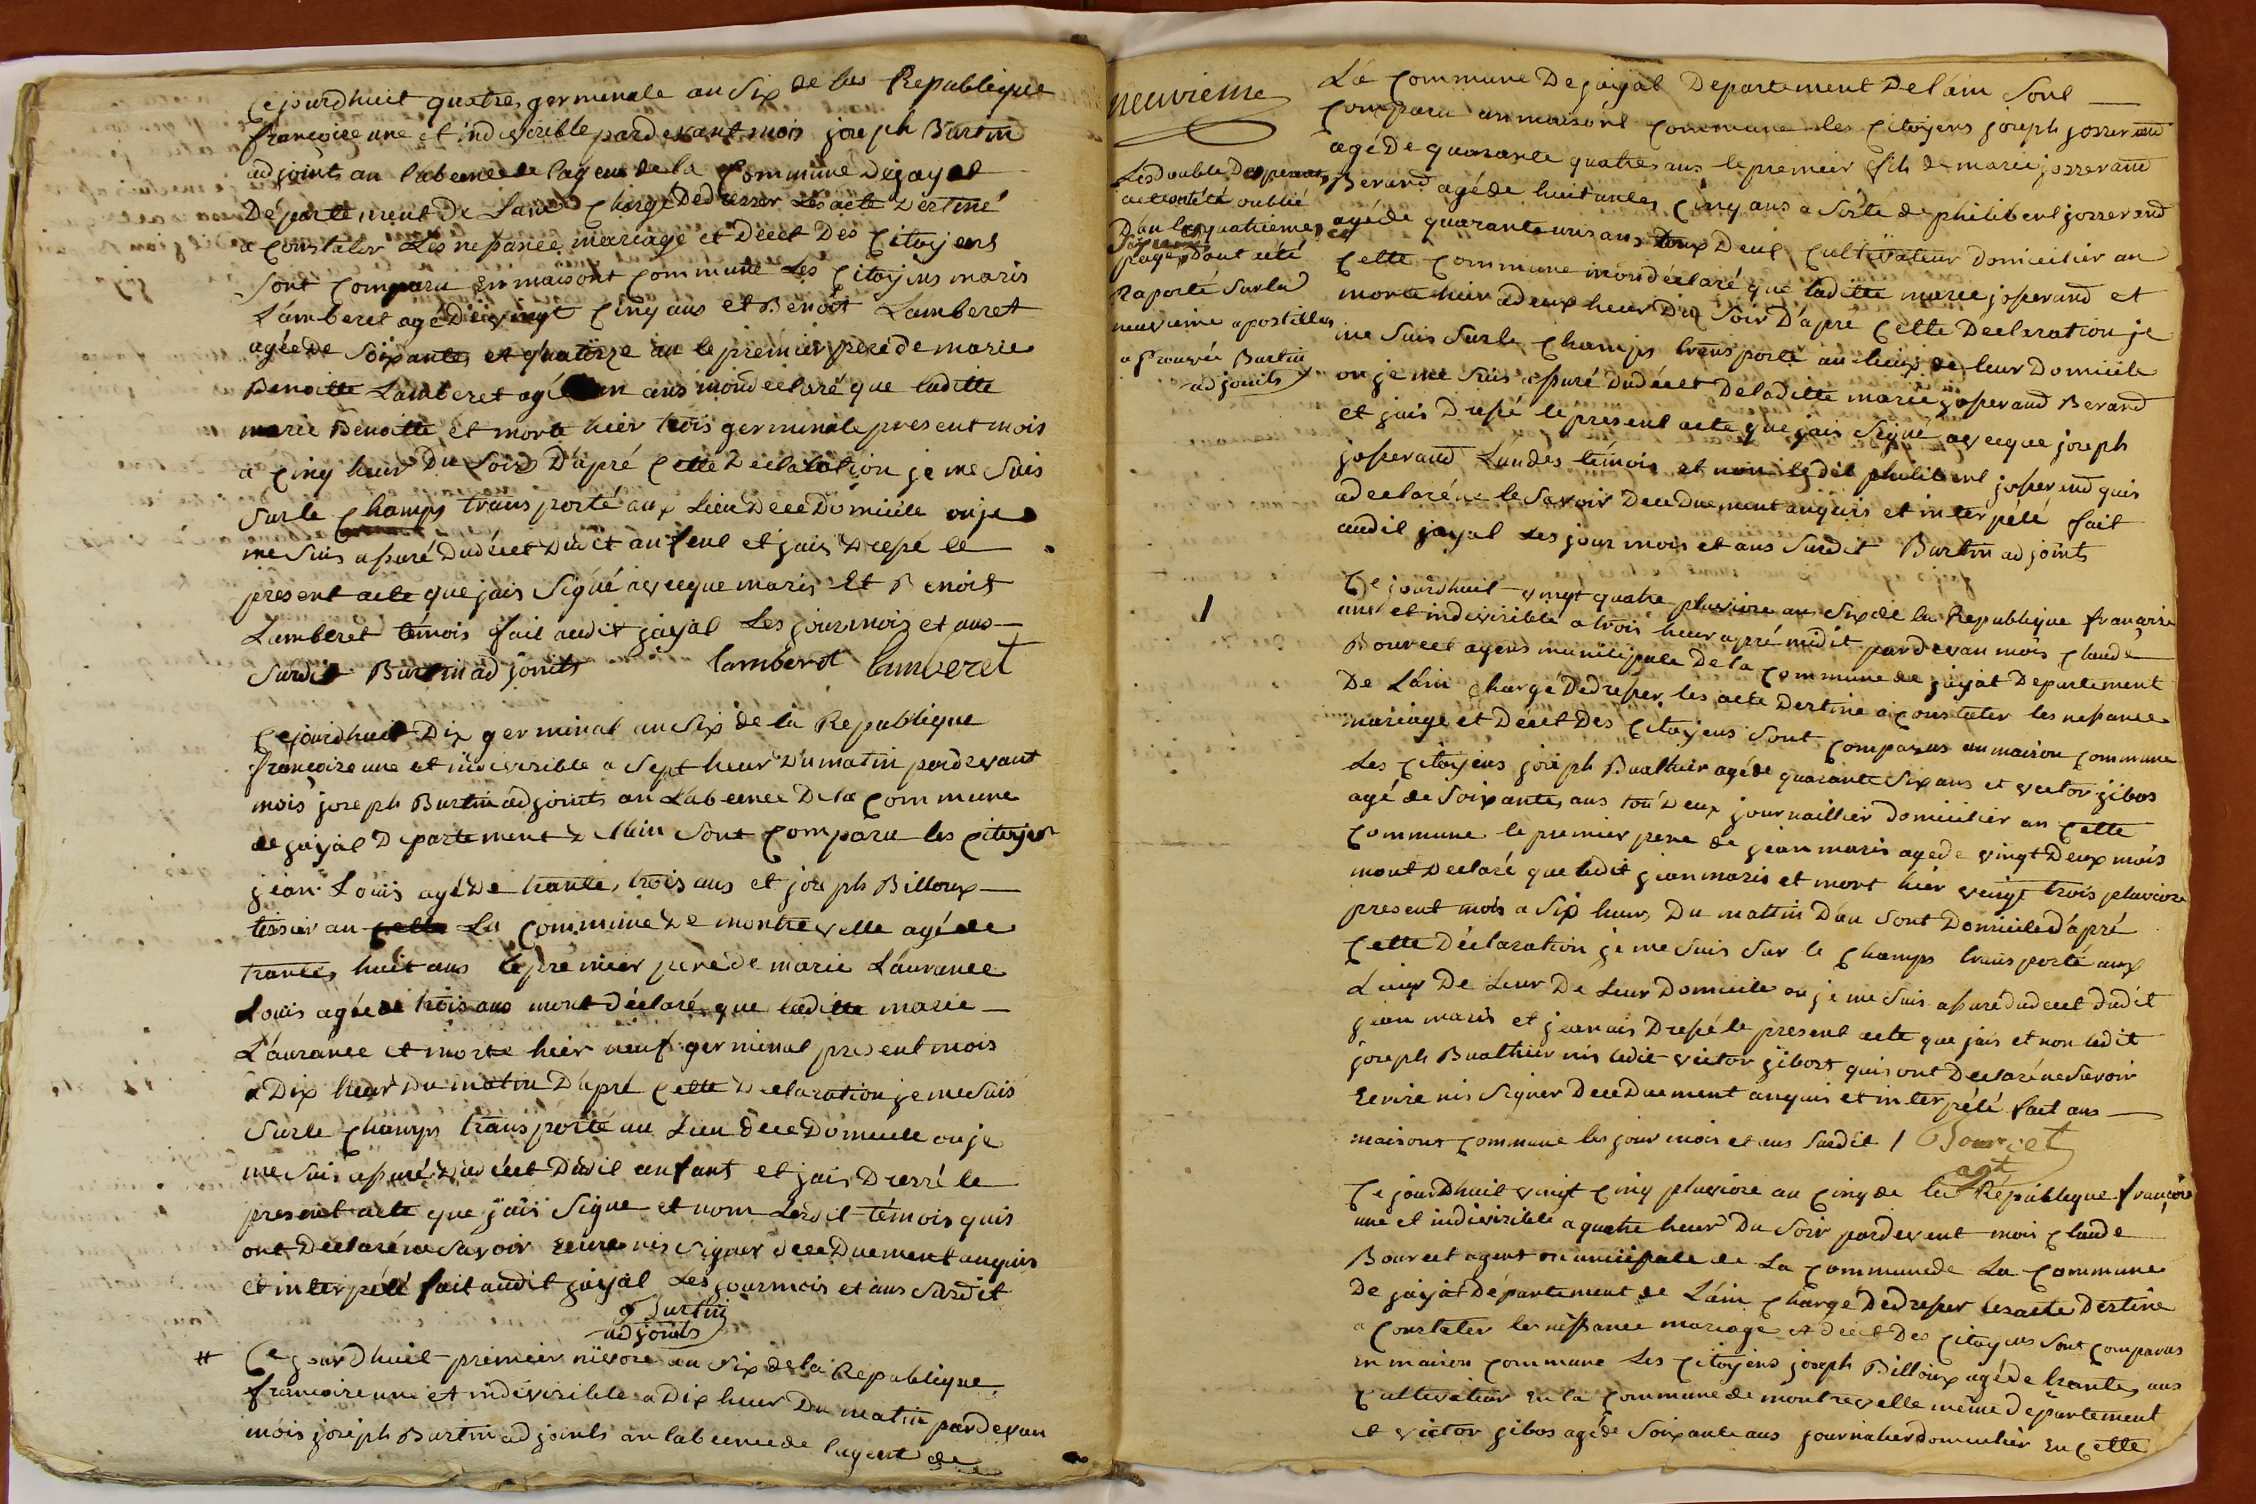 Cejourdhuit quatres germinale an Six de las Republique
francoise une et indivisible pardevant mois joseph Burtin
adjoints an labcence de lagent de la Commune dejayat
Département De Lain Chargé Dedresser Les acte Destiné
a Constater Les nepance mariage et Décet Des Citoyens
Sont Comparu en maisont Commune Les Citoyens maris
Lamberet agé De vingt Cinq ans et Benoit Lamberet
agée de Soixantes et quatorze an le premier pere de marie
Benoitte Lamberet agé un ans mon declaré que laditte
marie Benoitte et morte hier trois germinale present mois
a Cinq heur Du Soird D'apré Cette Declaration je me Suis
Surle Champs transporté aux Lieu Dece Domicile ou je
me Suis aßuré Dudécet Dudit anfent et jais Dreßé le
present acte que jais Signé avecque maris Et Benoit
Lamberet témois fait audit jayat Les jour mois et ans
Surdit Burtin adjoints lamberet lamberet
Cejourdhuit Dix germinal an Six de la Republique
francoise une et indivisible a Sept heur Du matin pardevant
mois joseph Burtin adjoints an Labcence De la Commune
de jayat Département De Lain Sont Comparu les Citoyen
jean Louis agé De trante trois ans et joseph Billoux
tissier an Cette La Commune De montrevelle agé de
trantes huit ans le premier pere de marie Laurance
Louis agée de trois ans mont déclaré que laditte marie
Laurance et morte hier neuf germinal present mois
a Dix heur Du matin D'apré Cette Declaration je me Suis
Surle Champs transporté au Lieu Dece Domicile ou je
me Suis aßuré Dudécet Dudit anfant et jais Dressé le
present acte que jais Signe et nom Lesdit témois quis
ont Declaré ne Savoir Ecrire nis Signer dece Duement anquis
et interpélé fait audit jayat Les jour mois et ans Surdit
Burtin
adjoints
# Ce jourdhuit premier nivose an Six de la Republique
francoise une et indivisible a Dix heur Du matin pardevan
mois joseph Burtin adjoints an labcence de lagent de
neuvieme
Les double Des present
acte ont été oublié
Dan les quatrieme
page Dont été
Raporté Surla
neuvieme apostille
aprouvée Burtin
adjoints
La Commune De jayat Departement De lain Sont
Comparu an maisont Commune les Citoyens joseph josserand
agé De quarante quatres ans le premier fils de marie josserand
Berand agé de huitantes Cinq ans a Sisté de philibert josserand
agé de quarante un ans tous Deux Cultivateur domicilier an
Cette Commune mon déclaré que laditte marie josserand et
morte hier a deux heur Du Soir D'apre Cette Declaration je
me Suis Surle Champs transporté au lieux de leur Domicile
ou je me Suis aßuré Dudécet De laditte marie joßerand Berand
et jais Dreßé le present acte que jais Signé avecque joseph
joßerand Lundes témois et non ledit philibert joßerand quis
a declaré ne le Savoir Dece Duement anquis et interpélé fait
audit jayal Les jour mois et ans Surdit Burtin adjoints
1
Ce jourdhuit vingt quatre pluviose an Six de la Republique francoise
une et indivisible a trois heur apré midit pardevan mois Claude
Bourcet agens municipale De la Commune de jayat Departement
De Lain Charge Dedreßer les acte Destine a Constater les neßance
mariage et Décet Des Citoyens Sont Comparus an maison Commune
Les Citoyens joseph Buathier agé de quarante Six ans et victor gibos
agé de Soixantes ans tou Deux journaillier domicilier an Cette
Commune le premier pere de jean maris agé de vingt Deux mois
mont Declaré que ledit jean maris et mort hier vingt trois pluviose
present mois a Six heur Du mattin Dan Sont Domicile d'apré
Cette Déclaration je me Suis Sur le Champs transporté aux
Lieux De Leur De Leur Domicile ou je me Suis aßuré du décet dudit
jean maris et jeanais Dreßé le present acte que jais et non ledit
joseph Buathier nis ledit victor gibost quis ont Declaré ne Savoir
Ecrire nis Signer Dece Duement anquis et interpélé fait ans
maisons Commune les jour mois et ans Surdit / Bourcet
agt
Ce jourdhuit vingt Cinq pluviose an Cinq de la République francoise
une et indivisible a quatre heur Du Soir pardevent mois Claude
Bourcet agent municipale de La Commune de La Commune
De jayat Département de Lain Chargé Dedreßer les acte Destine
a Constater les nißance mariage et décet Des Citoyens Sont Comparus
En maison Commune Les Citoyens joseph Billoux agé de trantes ans
Cultivateur En la Commune de montrevelle même département
et victor gibos agé de Soixante ans journalier domicilier En Cette